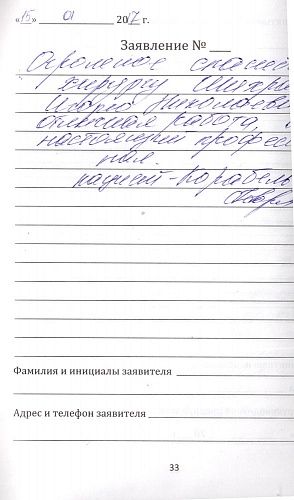 «15» 01 2017 г.
Заявление № ___
Огромное спаси
хирургу Шихри
Игорю Николаеви
отличная работа,
настоящий профес
нал.
пациент - Корабель
Фамилия и инициалы заявителя
Адрес и телефон заявителя
33